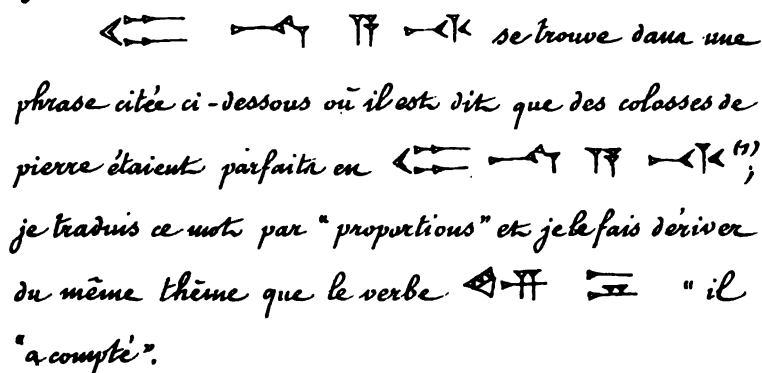 𒈪 𒈾 𒀀 𒋾 se trouve dans une
phrase citée ci-dessous où il est dit que des colosses de
pierre étaient parfaits en 𒈪 𒈾 𒀀 𒋾 (1);
je traduis ce mot par "proportions" et je le fais dériver
du même thème que le verbe 𒅎 "il
"a compté".